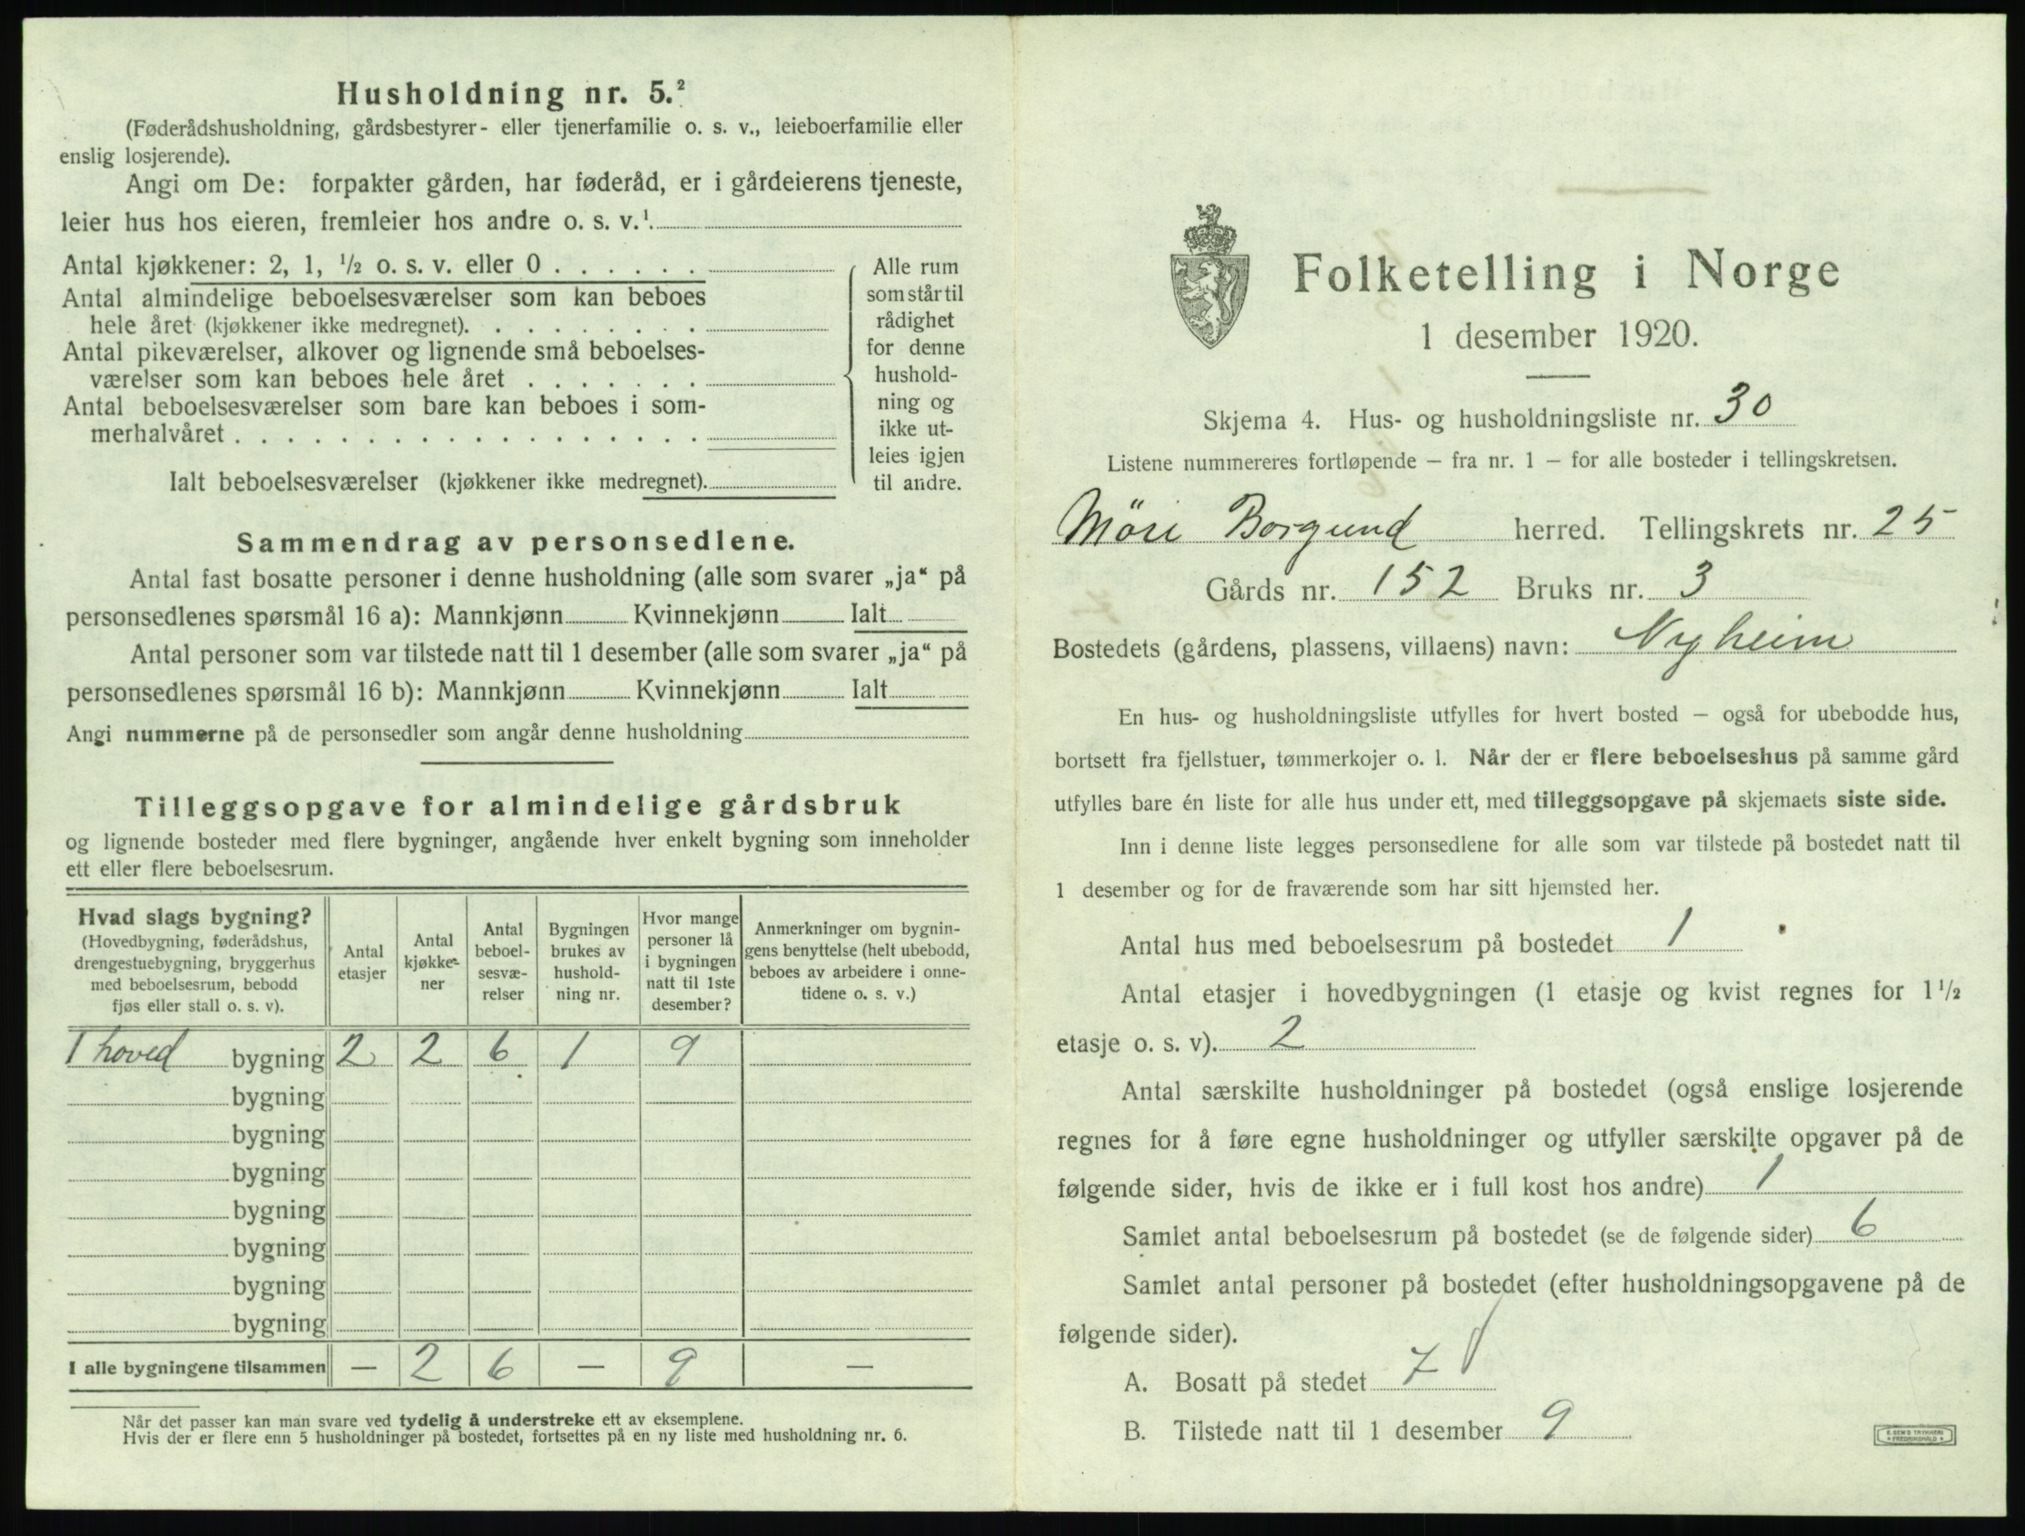 Husholdning nr. 5.²
(Føderådshusholdning, gårdsbestyrer- eller tjenerfamilie o. s. v., leieboerfamilie eller
enslig losjerende).
Angi om De: forpakter gården, har føderåd, er i gårdeierens tjeneste,
leier hus hos eieren, fremleier hos andre o. s. v.¹
Antal kjøkkener: 2, 1, ½ o. s. v. eller 0 . . . . . .
Antal almindelige beboelsesværelser som kan beboes
hele året (kjøkkener ikke medregnet). . . . . . . . .
Antal pikeværelser, alkover og lignende små beboelses-
værelser som kan beboes hele året . . . . . . .
Antal beboelsesværelser som bare kan beboes i som-
merhalvåret . . . . . . . . . . . . . . . . . .
Ialt beboelsesværelser (kjøkkener ikke medregnet).
Alle rum
som står til
rådighet
for denne
hushold-
ning og
ikke ut-
leies igjen
til andre.
Sammendrag av personsedlene.
Antal fast bosatte personer i denne husholdning (alle som svarer „ja“ på
personsedlenes spørsmål 16 a): Mannkjønn Kvinnekjønn Ialt
Antal personer som var tilstede natt til 1 desember (alle som svarer „ja“ på
personsedlenes spørsmål 16 b): Mannkjønn Kvinnekjønn Ialt
Angi nummerne på de personsedler som angår denne husholdning
Tilleggsopgave for almindelige gårdsbruk
og lignende bosteder med flere bygninger, angående hver enkelt bygning som inneholder
ett eller flere beboelsesrum.
Hvad slags bygning?
(Hovedbygning, føderådshus,
drengestuebygning, bryggerhus
med beboelsesrum, bebodd
fjøs eller stall o. s. v).
Antal
etasjer
Antal
kjøkke-
ner
Antal
beboel-
sesvæ-
relser
Bygningen
brukes av
hushold-
ning nr.
Hvor mange
personer lå
i bygningen
natt til 1ste
desember?
Anmerkninger om bygnin-
gens benyttelse (helt ubebodd,
beboes av arbeidere i onne-
tidene o. s. v.)
1 hoved bygning 2 2 6 1 9
bygning
bygning
bygning
bygning
bygning
bygning
bygning
I alle bygningene tilsammen — 2 6 — 9 —
Når det passer kan man svare ved tydelig å understreke ett av eksemplene.
Hvis der er flere enn 5 husholdninger på bostedet, fortsettes på en ny liste med husholdning nr. 6.
Folketelling i Norge
1 desember 1920.
Skjema 4. Hus- og husholdningsliste nr. 30
Listene nummereres fortløpende — fra nr. 1 — for alle bosteder i tellingskretsen.
Möre Borgund herred. Tellingskrets nr. 25
Gårds nr. 152 Bruks nr. 3
Bostedets (gårdens, plassens, villaens) navn: Nyheim
En hus- og husholdningsliste utfylles for hvert bosted — også for ubebodde hus,
bortsett fra fjellstuer, tømmerkojer o. l. Når der er flere beboelseshus på samme gård
utfylles bare én liste for alle hus under ett, med tilleggsopgave på skjemaets siste side.
Inn i denne liste legges personsedlene for alle som var tilstede på bostedet natt til
1 desember og for de fraværende som har sitt hjemsted her.
Antal hus med beboelsesrum på bostedet 1
Antal etasjer i hovedbygningen (1 etasje og kvist regnes for 1½
etasje o. s. v). 2
Antal særskilte husholdninger på bostedet (også enslige losjerende
regnes for å føre egne husholdninger og utfyller særskilte opgaver på de
følgende sider, hvis de ikke er i full kost hos andre) 1
Samlet antal beboelsesrum på bostedet (se de følgende sider) 6
Samlet antal personer på bostedet (efter husholdningsopgavene på de
følgende sider).
A. Bosatt på stedet 7
B. Tilstede natt til 1 desember 9
E. SEM'S TRYKKERI
FREDRIKSHALD